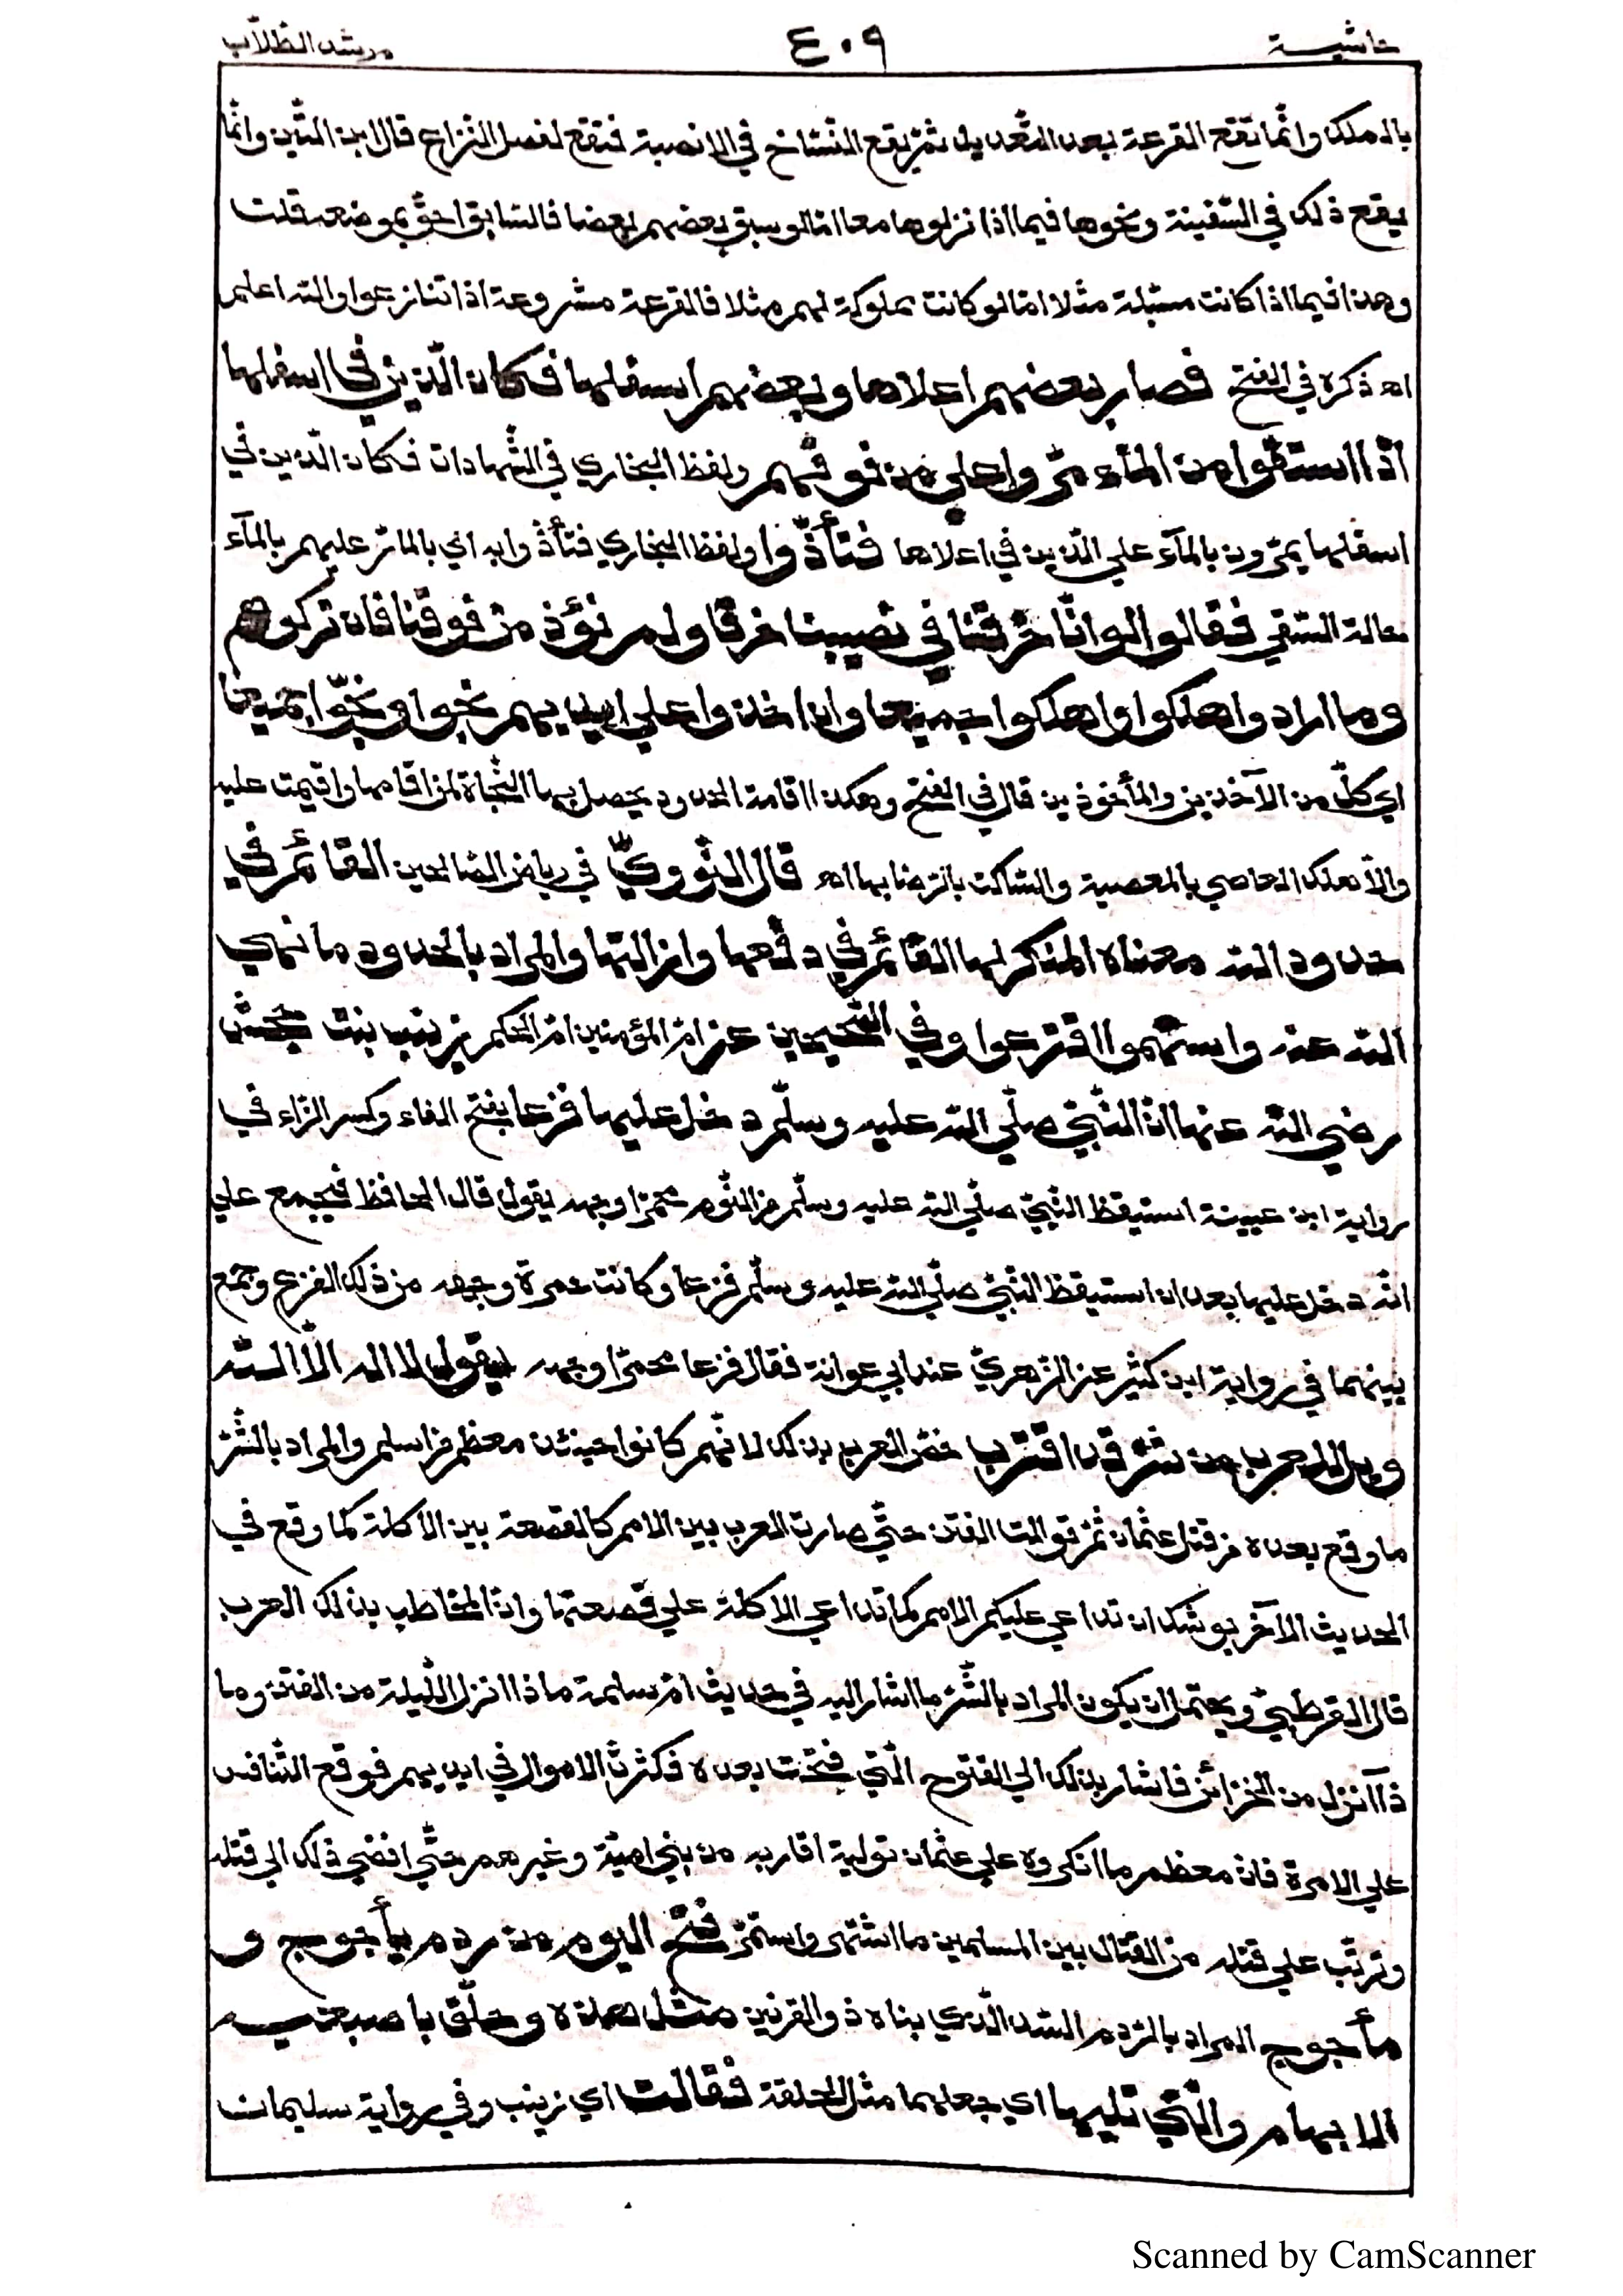 حاشية ٤٠٩ مرشد الطلّاب
بالملك وانّما تقع القرعة بعد التّعديل ثمّ يقع التّشاحّ في الانصبة فتقع لفصل النّزاع قال ابن التّين وانّما
يقع ذلك في السّفينة ونحوها فيما اذا نزلوها معا امّا لو سبق بعضهم بعضا فالسّابق احقّ بموضعه قلت
وهذا فيما اذا كانت مسبّلة مثلا امّا لو كانت مملوكة لهم مثلا فالقرعة مشروعة اذا تنازعوا والله اعلم
اه ذكره في الفتح فصار بعضهم اعلاها وبعضهم اسفلها فكان الّذين في اسفلها
اذا استقوا من المآء مرّوا علي من فوقهم ولفظ البخاري في الشّهادات فكان الّذين في
اسفلها يمرّون بالمآء علي الّذين في اعلاها فتأذّوا ولفظ البخاري فتأذّوا به اي بالمارّ عليهم بالمآء
حالة السّقي فقالوا لو انّا خرقنا في نصيبنا خرقا ولم نؤذ من فوقنا فان تركوهم
وما ارادوا هلكوا وهلكوا جميعا وان اخذوا علي ايديهم نجوا ونجّوا جميعا
اي كلّ من الآخذين والمأخوذين قال في الفتح وهكذا اقامة الحدود يحصل بها النّجاة لمن اقامها واقيمت عليه
والّا هلك العاصي بالمعصية والسّاكت بالرّضا بها اه قال النّوويّ في رياض الصّالحين القائم في
حدود الله معناه المنكر لها القائم في دفعها وازالتها والمراد بالحدود ما نهي
الله عنه واستهموا اقترعوا وفي الصّحيحين عن امّ المؤمنين امّ الحكم زينب بنت جحش
رضي الله عنها انّ النّبيّ صلّي الله عليه وسلّم دخل عليها فزعا بفتح الفاء وكسر الزّاء في
رواية ابن عيينة استيقظ النّبيّ صلّي الله عليه وسلّم من النّوم محمرّا وجهه يقول قال الحافظ فيجمع علي
انّه دخل عليها بعد ان استيقظ النّبيّ صلّي الله عليه وسلّم فزعا وكانت حمرة وجهه من ذلك الفزع وجمع
بينهما في رواية ابن كثير عن الزّهريّ عند ابي عوانة فقال فزعا محمرّا وجهه يقول لا اله الّا الله
ويل للعرب من شرّ قد اقترب خصّ العرب بذلك لانّهم كانوا حينئذ معظم من اسلم والمراد بالشّرّ
ما وقع بعده من قتل عثمان ثمّ توالت الفتن حتّي صارت العرب بين الامم كالقصعة بين الاكلة كما وقع في
الحديث الآخر يوشك ان تداعي عليكم الامم كما تداعي الاكلة علي قصعتها وانّ المخاطب بذلك العرب
قال القرطبيّ ويحتمل ان يكون المراد بالشّرّ ما اشار اليه في حديث امّ سلمة ماذا انزل اللّيلة من الفتن وما
ذآ انزل من الخزائن فاشار بذلك الي الفتوح الّتي فتحت بعده فكثرت الاموال في ايديهم فوقع التّنافس
علي الامرة فانّ معظم ما انكروه علي عثمان تولية اقاربه من بني اميّة وغيرهم حتّي افضي ذلك الي قتله
وترتّب علي قتله من القتال بين المسلمين ما اشتهر واستمرّ فتح اليوم من ردم يأجوج و
مأجوج المراد بالرّدم السّدّ الّذي بناه ذو القرنين مثل هذه وحلّق باصبعيه
الابهام والّتي تليها اي جعلهما مثل الحلقة فقالت اي زينب وفي رواية سليمان
Scanned by CamScanner